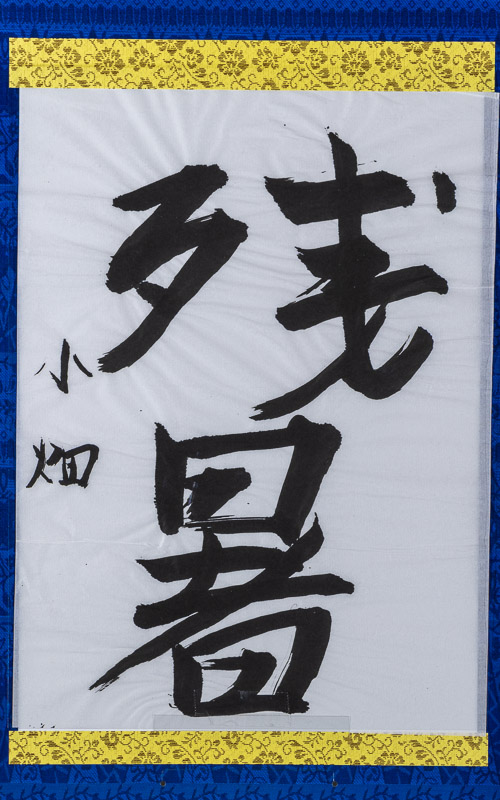 残暑
小畑